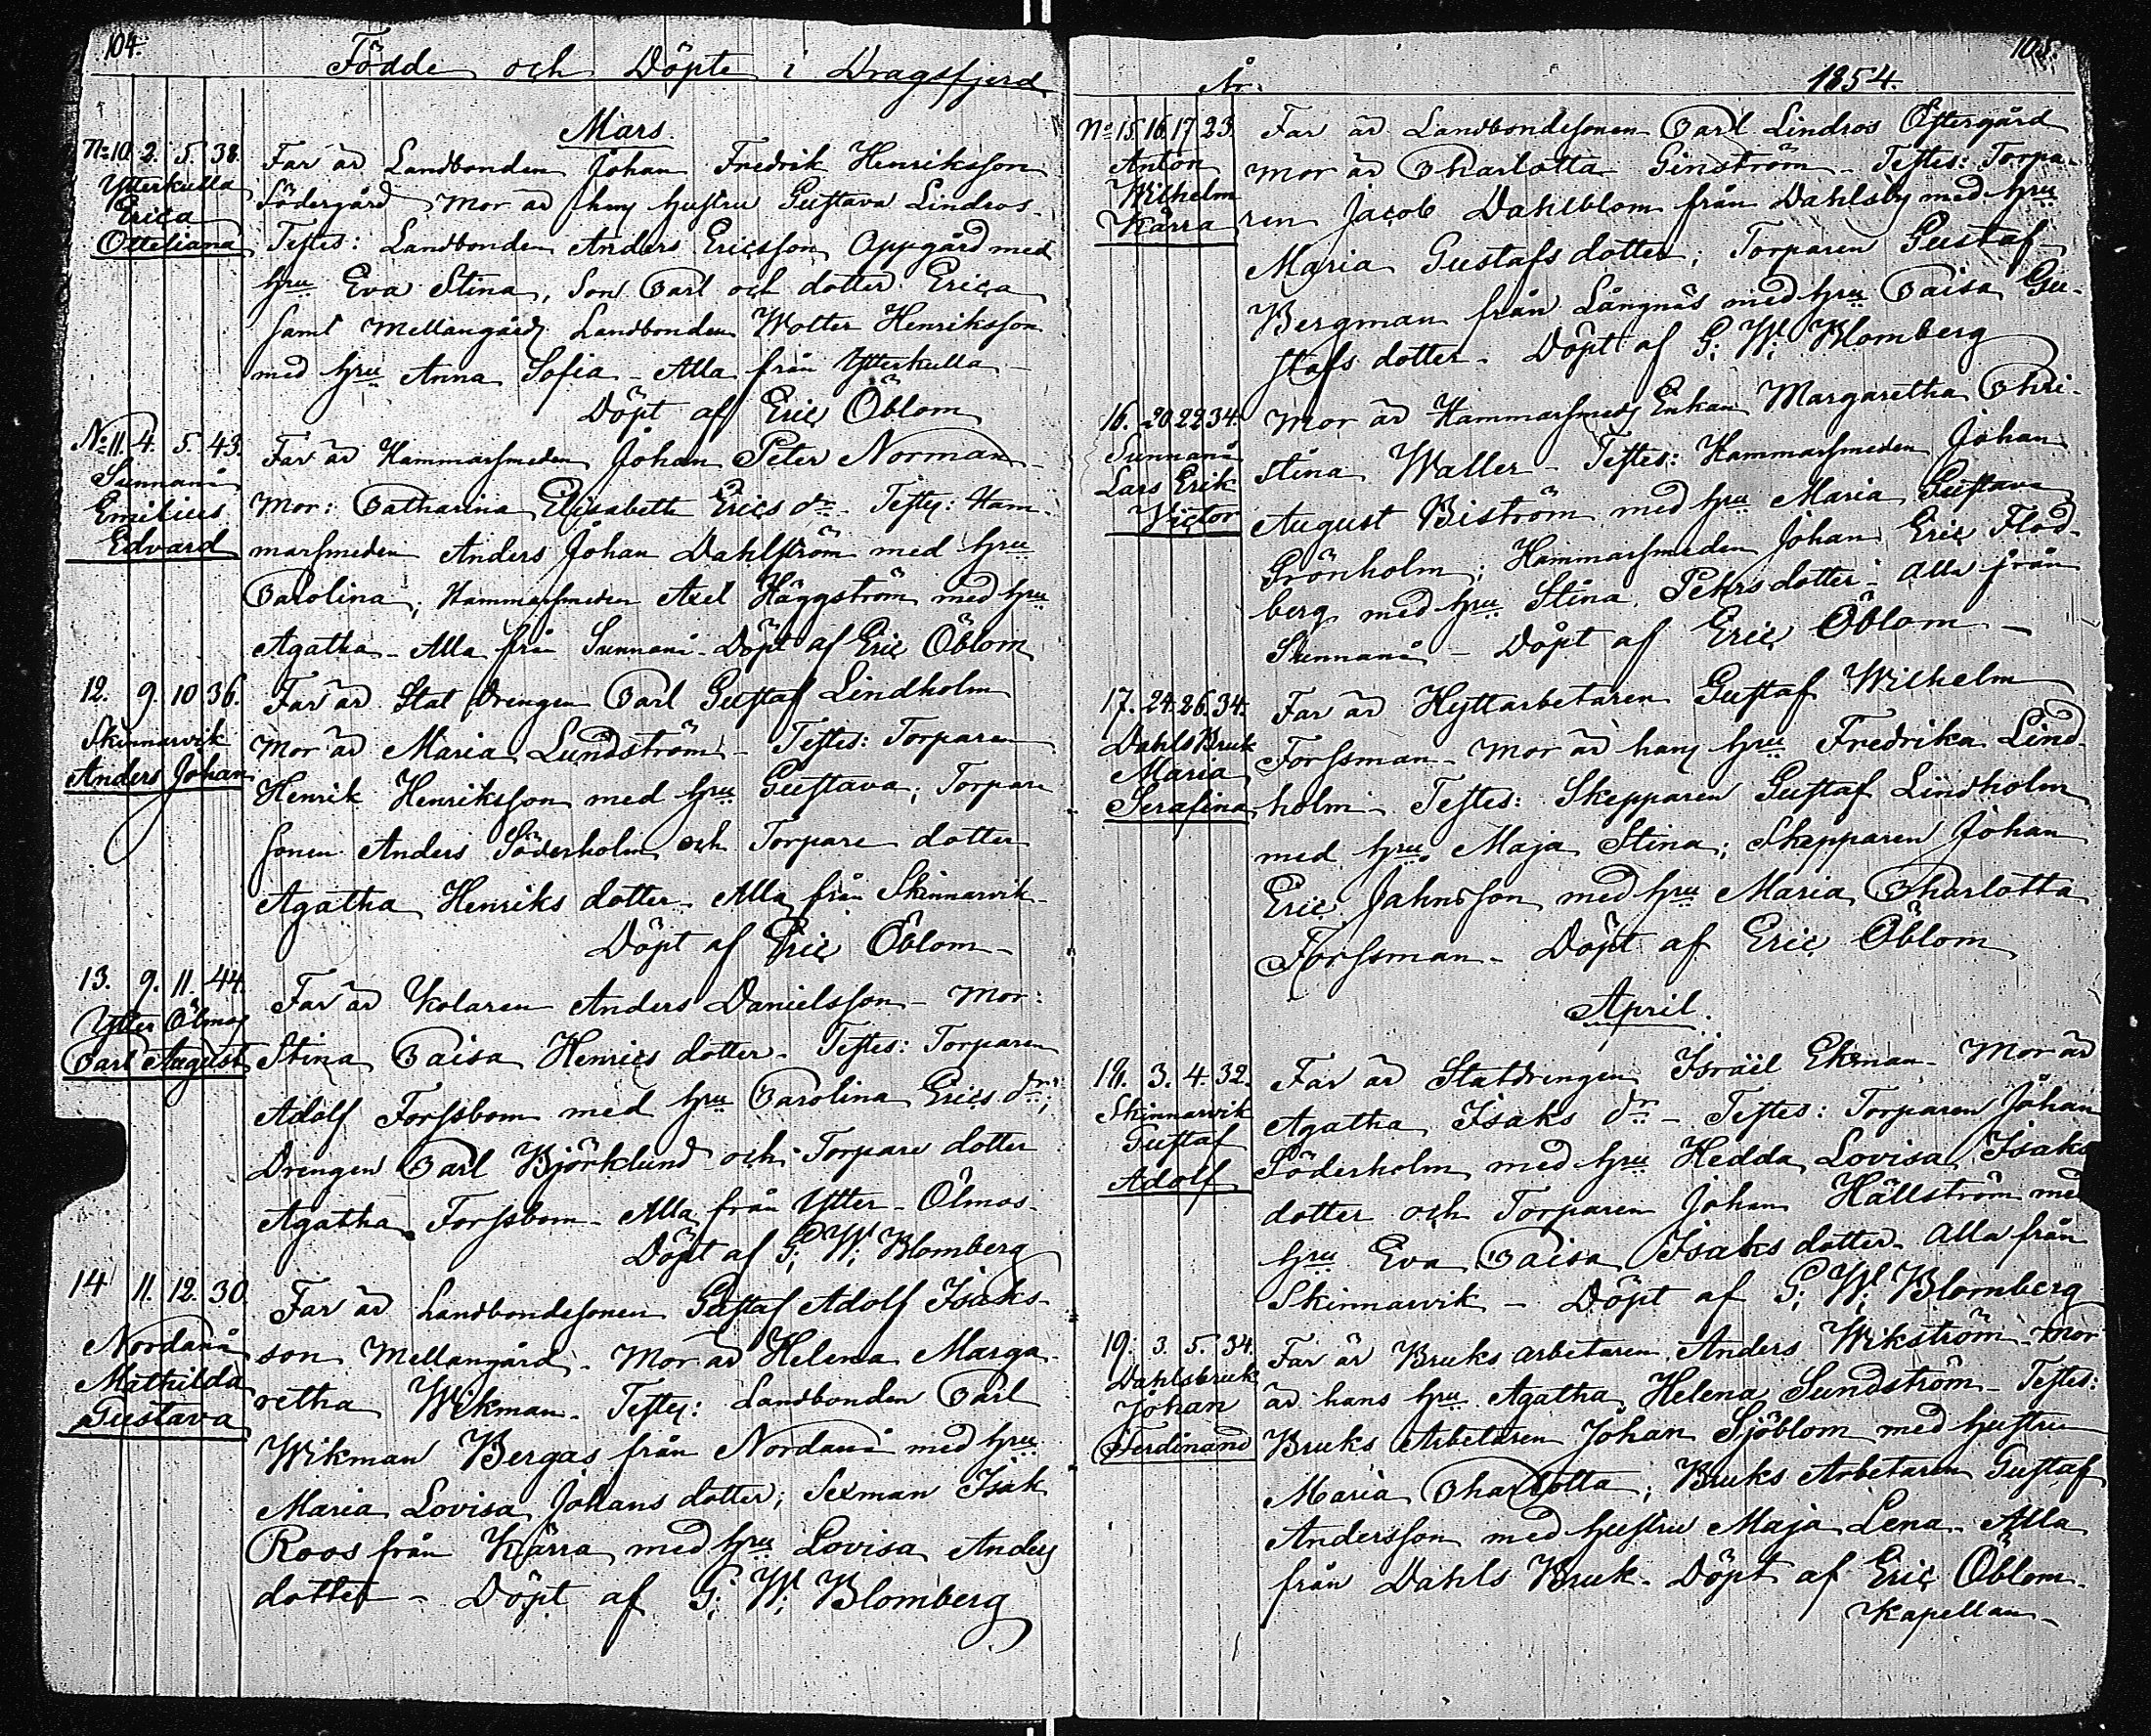 104.
Födde och Döpte i Dragsfjerd
Mars.
No 10. 2. 5. 38.
Ytterkulla
Erica
Otteliana
Far är Landbonden Johan Fredrik Henriksson
Södergård Mor är hans hustru Gustava Lindros -
Testes: Landbonden Anders Ericsson Oppgård med
hru Eva Stina, Son Carl och dotter Erica
samt Mellangårds Landbonden Wolter Henriksson
med hru Anna Sofia - Alla från Ytterkulla -
Döpt af Eric Öblom
No 11. 4. 5. 43.
Sunnanå
Emilius
Edvard
Far är Hammarsmeden Johan Peter Norman -
Mor: Catharina Elisabeth Erics dr - Testes: Ham-
marsmeden Anders Johan Dahlström med hru
Carolina; Hammarsmeden Axel Häggström med hru
Agatha - Alla från Sunnanå - Döpt af Eric Öblom
12. 9. 10 36.
Skinnarvik
Anders Johan
Far är Stat Drengen Carl Gustaf Lindholm
Mor är Maria Lundström - Testes: Torparen
Henrik Henriksson med hru Gustava; Torpare
sonen Anders Söderholm och Torpare dotter
Agatha Henriks dotter - Alla från Skinnarvik -
Döpt af Eric Öblom -
13. 9. 11. 44.
Ytter Ölmos
Carl August
Far är Kolaren Anders Danielsson - Mor:
Stina Caisa Henrics dotter - Testes: Torparen
Adolf Forssbom med hru Carolina Erics dr;
Drengen Carl Björklund och Torpare dotter
Agatha Forssbom - Alla från Ytter - Ölmos -
Döpt af G: W: Blomberg
14 11. 12. 30.
Nordanå
Mathilda
Gustava
Far är Landbondesonen Gustaf Adolf Isaks-
son Mellangård - Mor är Helena Marga-
retha Wikman - Testes: Landbonden Carl
Wikman Bergas från Nordanå med hru
Maria Lovisa Johans dotter; Sexman Isak
Roos från Kärra med hru Lovisa Anders
dotter - Döpt af G: W: Blomberg
105.
År 1854.
No 15. 16. 17 23.
Anton
Wilhelm
Kärra
Far är Landbondesonen Carl Lindros Östergård
Mor är Charlotta Ginström - Testes: Torpa-
ren Jacob Dahlblom från Dahlsby med hru
Maria Gustafs dotter; Torparen Gustaf
Bergman från Långnäs med hru Caisa Gu-
stafs dotter - Döpt af G: W: Blomberg
16. 20. 22 34.
Sunnanå
Lars Erik
Victor
Mor är Hammarsmeds Enkan Margaretha Chri-
stina Waller - Testes: Hammarsmeden Johan
August Biström med hru Maria Gustava
Grönholm; Hammarsmeden Johan Eric Flod-
berg med hru Stina Pehrs dotter - Alla från
Sunnanå - Döpt af Eric Öblom -
17. 24. 26. 34.
Dahls Bruk
Maria
Serafina
Far är Hyttarbetaren Gustaf Wilhelm
Forssman - Mor är hans hru Fredrika Lind-
holm - Testes: Skepparen Gustaf Lindholm
med hru Maja Stina; Skepparen Johan
Eric Jahnsson med hru Maria Charlotta
Forssman - Döpt af Eric Öblom
April.
18. 3. 4. 32.
Skinnarvik
Gustaf
Adolf
Far är Statdrengen Israel Ekman - Mor är
Agatha Isaks dr - Testes: Torparen Johan
Söderholm med hru Hedda Lovisa Isaks
dotter och Torparen Johan Hällström med
hru Eva Caisa Isaks dotter - Alla från
Skinnarvik - Döpt af G: W: Blomberg
19. 3. 5. 34.
Dahlsbruk
Johan
Ferdinand
Far är Bruks arbetaren Anders Wikström - Mor
är hans hru Agatha Helena Sundström - Testes:
Bruks Arbetaren Johan Sjöblom med hustru
Maria Charlotta; Bruks Arbetaren Gustaf
Andersson med hustru Maja Lena - Alla
från Dahls Bruk - Döpt af Eric Öblom -
Kapellan -